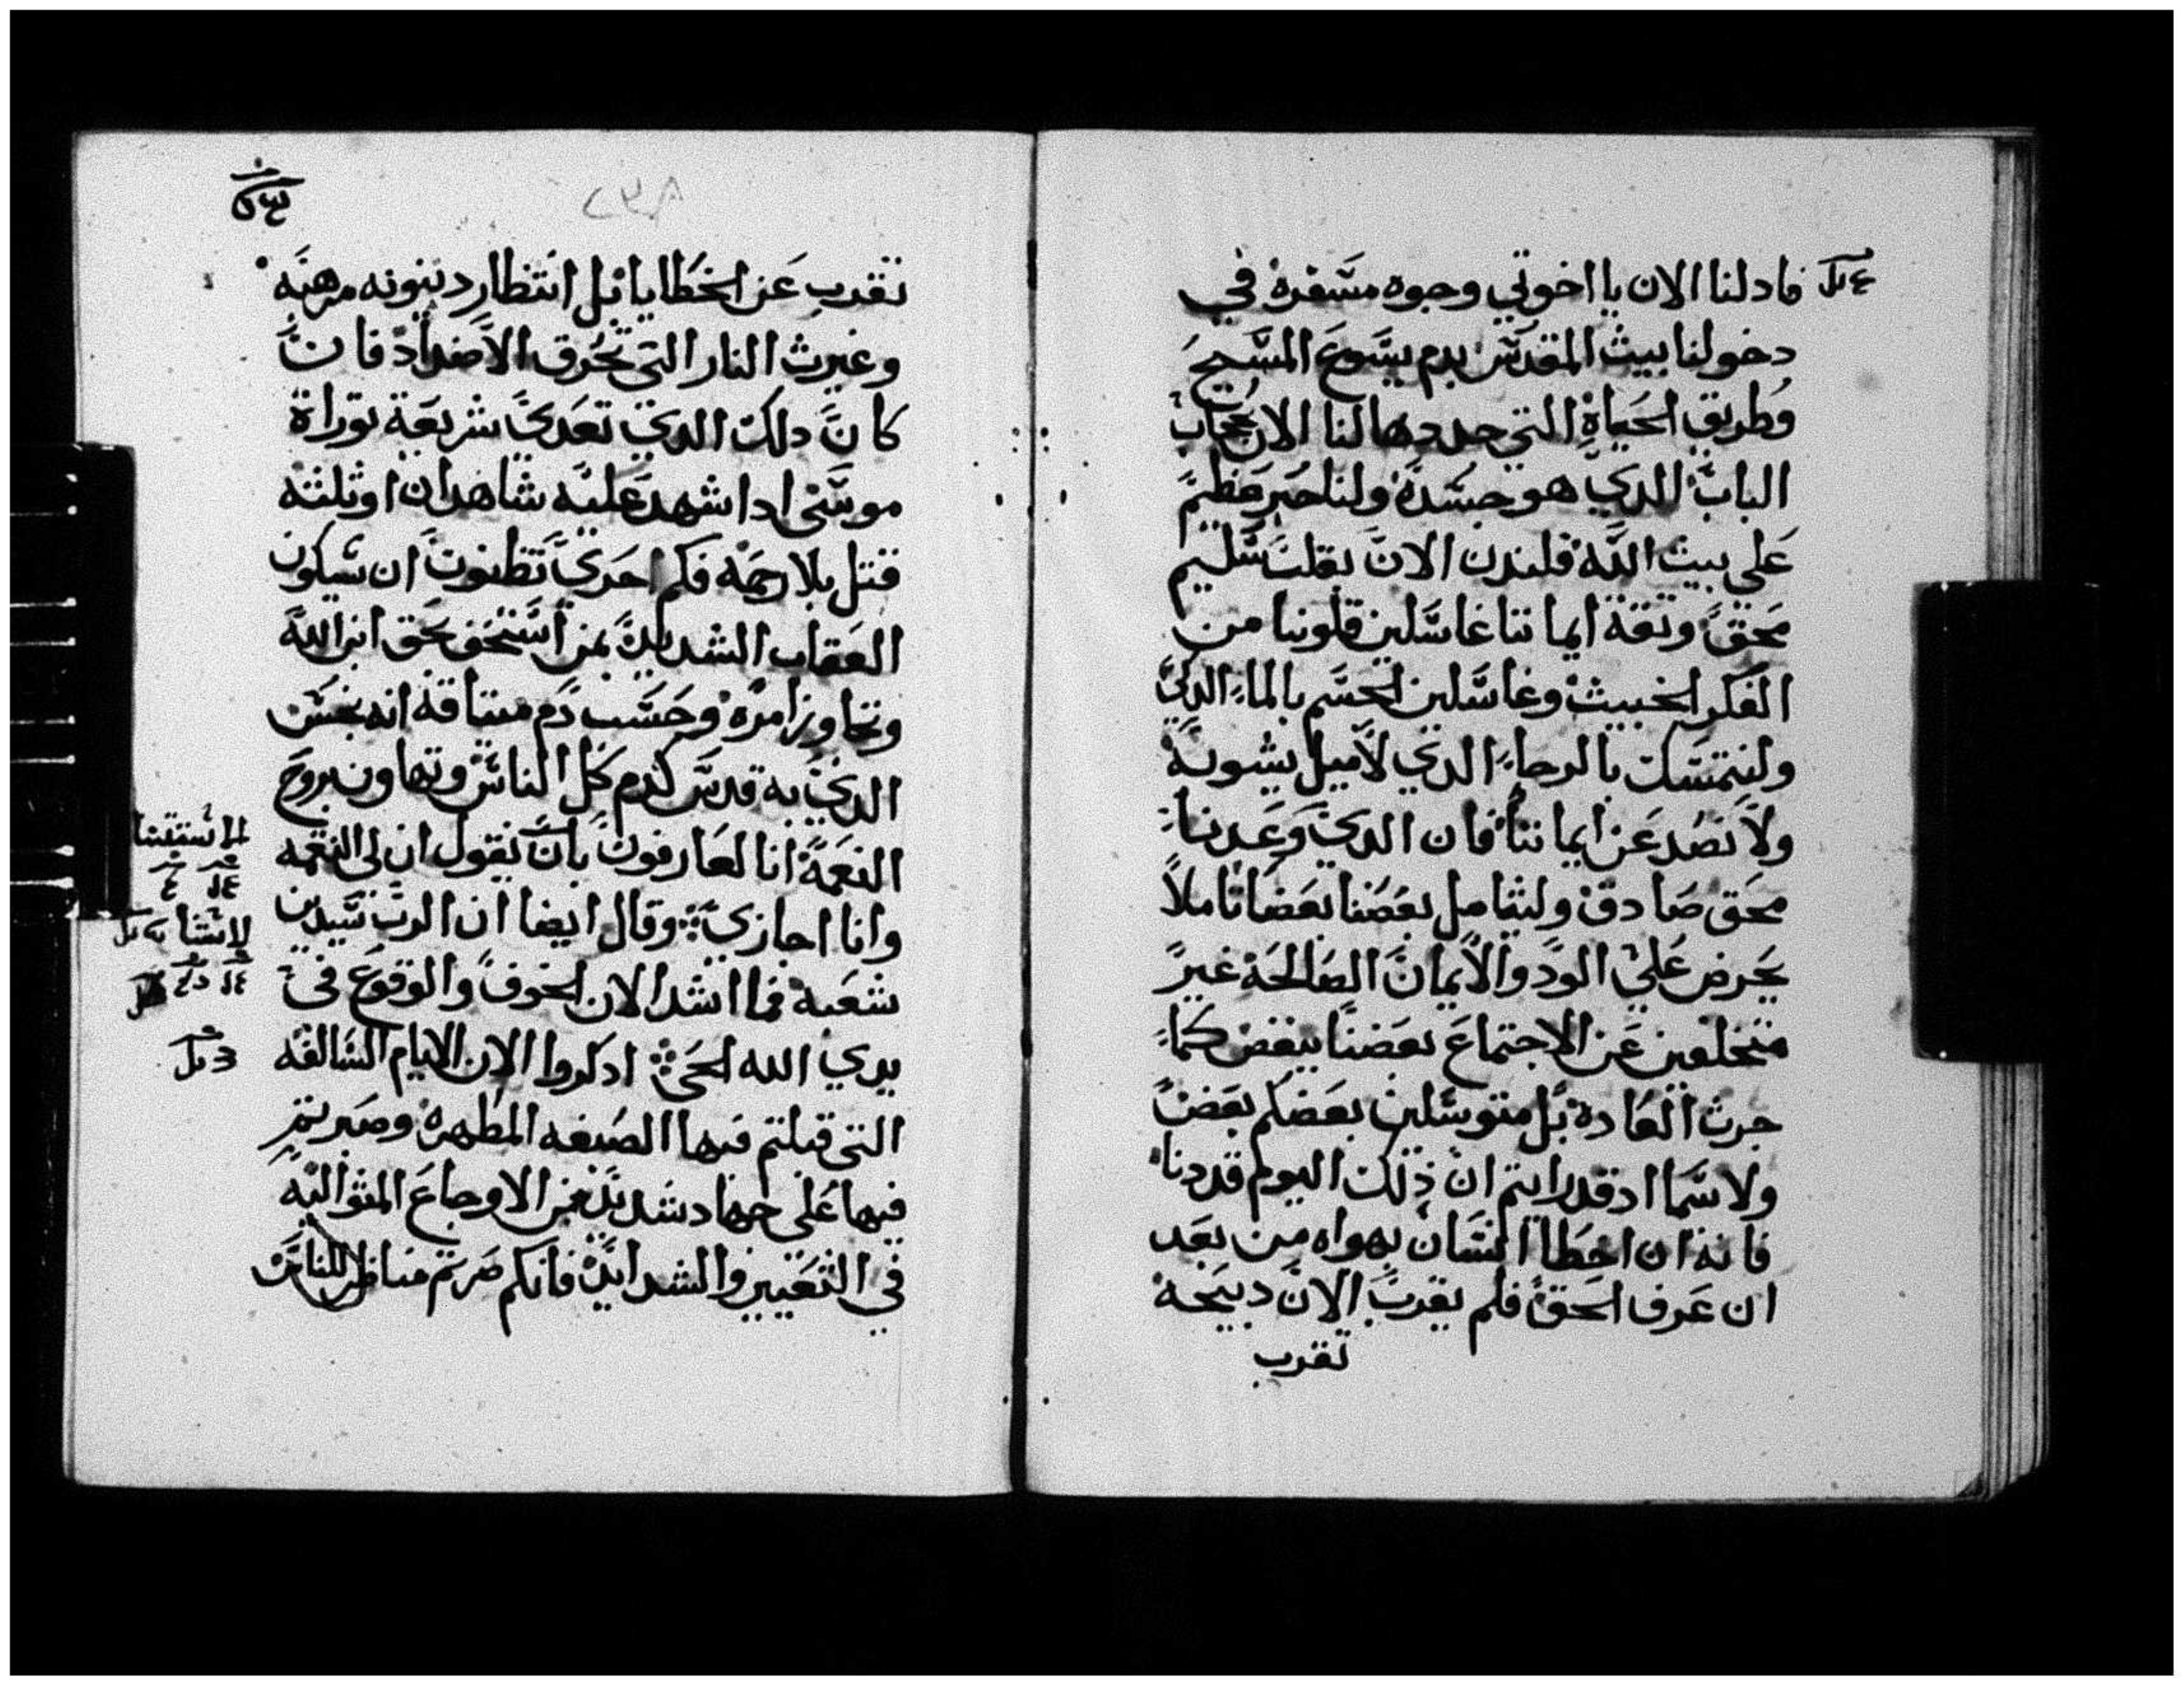 فادلنا الان يا اخوتي وجوه مسفره في
دخولنا بيت المقدس بدم يسوع المسيح
وطريق الحياة التي جددها لنا الان بحجاب
الباب الدي هو جسده ولنا حبر عظيم
على بيت الله فلندن الان بقلب سليم
محق وتقة ايماننا غاسلين قلوبنا من
الفكر الخبيث وغاسلين الجسم بالماء الدكي
ولنتمسك بالرجاء الدي لا ميل يشوبة
ولا نصد عن ايماننا فان الدي وعدنا
محق صادق وليتامل بعضنا بعضا تاملا
يحرض على الود والايمان الصالحة غير
متخلفين عن الاجتماع بعضنا ببعض كما
جرت العادة بل متوسلين بعضكم بعض
ولا سما اد قد رايتم ان ذلك اليوم قد دنا
فانه ان اخطا انسان بهواه من بعد
ان عرف الحق فلم يقرب الان دبيحة
تقرب
تقرب عن الخطايا بل انتظار دينونه مرهبه
وغيرت النار التي تحرق الاضداد فان
كان دلك الدي تعدي شريعة توراة
موسى ادا شهد عليه شاهدان او ثلثه
قتل بلا رحمه فكم احري تظنون ان سيكون
العقاب الشديد بمن استخف بحق ابن الله
وتجاوز امره وحسب دم ميتاقه انه نجس
الدي به قدس كدم كل الناس وتهاون بروح
النعمة انا لعارفون بان يقول ان لي النقمه
وانا اجازي وقال ايضا ان الرب سيدين
شعبه فما اشد الان الخوف والوقوع في
يدي الله الحي ادكروا الان الايام السالفه
التي قبلتم فيها الصبغه المطهره وصبرتم
فيها على جهاد شديد من الاوجاع المتواليه
في التعيير والشدايد فانكم صرتم مناظر للناس